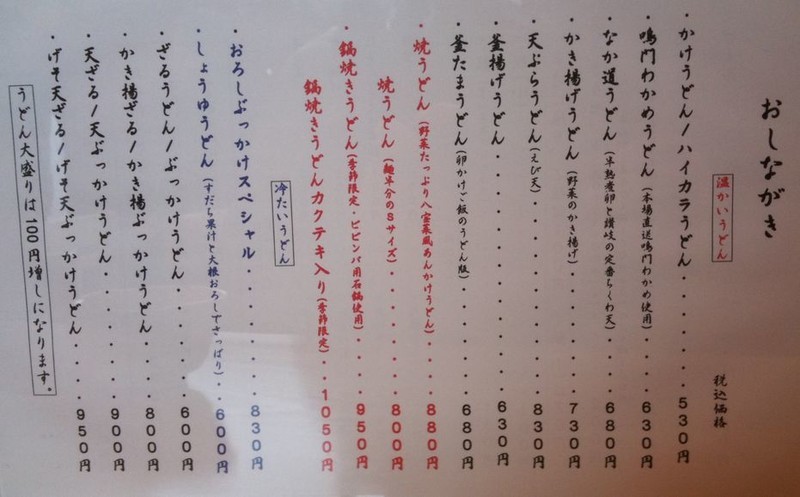 おしながき
温かいうどん
税込価格
・かけうどん/ハイカラうどん・・・・・・・530円
・鳴門わかめうどん(本場直送鳴門わかめ使用)・・・630円
・なか道うどん(半熟煮卵と讃岐の定番ちくわ天)・・680円
・かき揚げうどん(野菜のかき揚げ)・・・・・730円
・天ぷらうどん(えび天)・・・・・・・・830円
・釜揚げうどん・・・・・・・・・・・630円
・釜たまうどん(卵かけご飯のうどん版)・・・・680円
・焼うどん(野菜たっぷり八宝菜風あんかけうどん)・・・880円
焼うどん(麺半分のSサイズ)・・・・・800円
・鍋焼きうどん(季節限定・ビビンバ用石鍋使用)・・・950円
鍋焼きうどんカクテキ入り(季節限定)・・1050円
冷たいうどん
・おろしぶっかけスペシャル・・・・・・・830円
・しょうゆうどん(すだち果汁と大根おろしでさっぱり)・・600円
・ざるうどん/ぶっかけうどん・・・・・・600円
・かき揚ざる/かき揚ぶっかけうどん・・・・800円
・天ざる/天ぶっかけうどん・・・・・・900円
・げそ天ざる/げそ天ぶっかけうどん・・・・950円
うどん大盛りは100円増しになります。